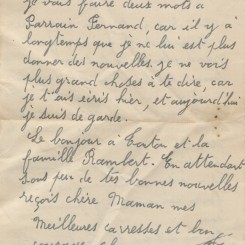 je vais faire deux mots à
Parrain Fernand, car il y à
longtemps que je ne lui est plus
donner des nouvelles. je ne vois
plus grand choses à te dire, car
je t'ais écris hier, et aujourd'hui
je suis de garde.
Le bonjour à Torton et la
famille Rambert. En attendant
sous peu de tes bonnes nouvelles
reçois chère Maman mes
Meilleures carresses et bon